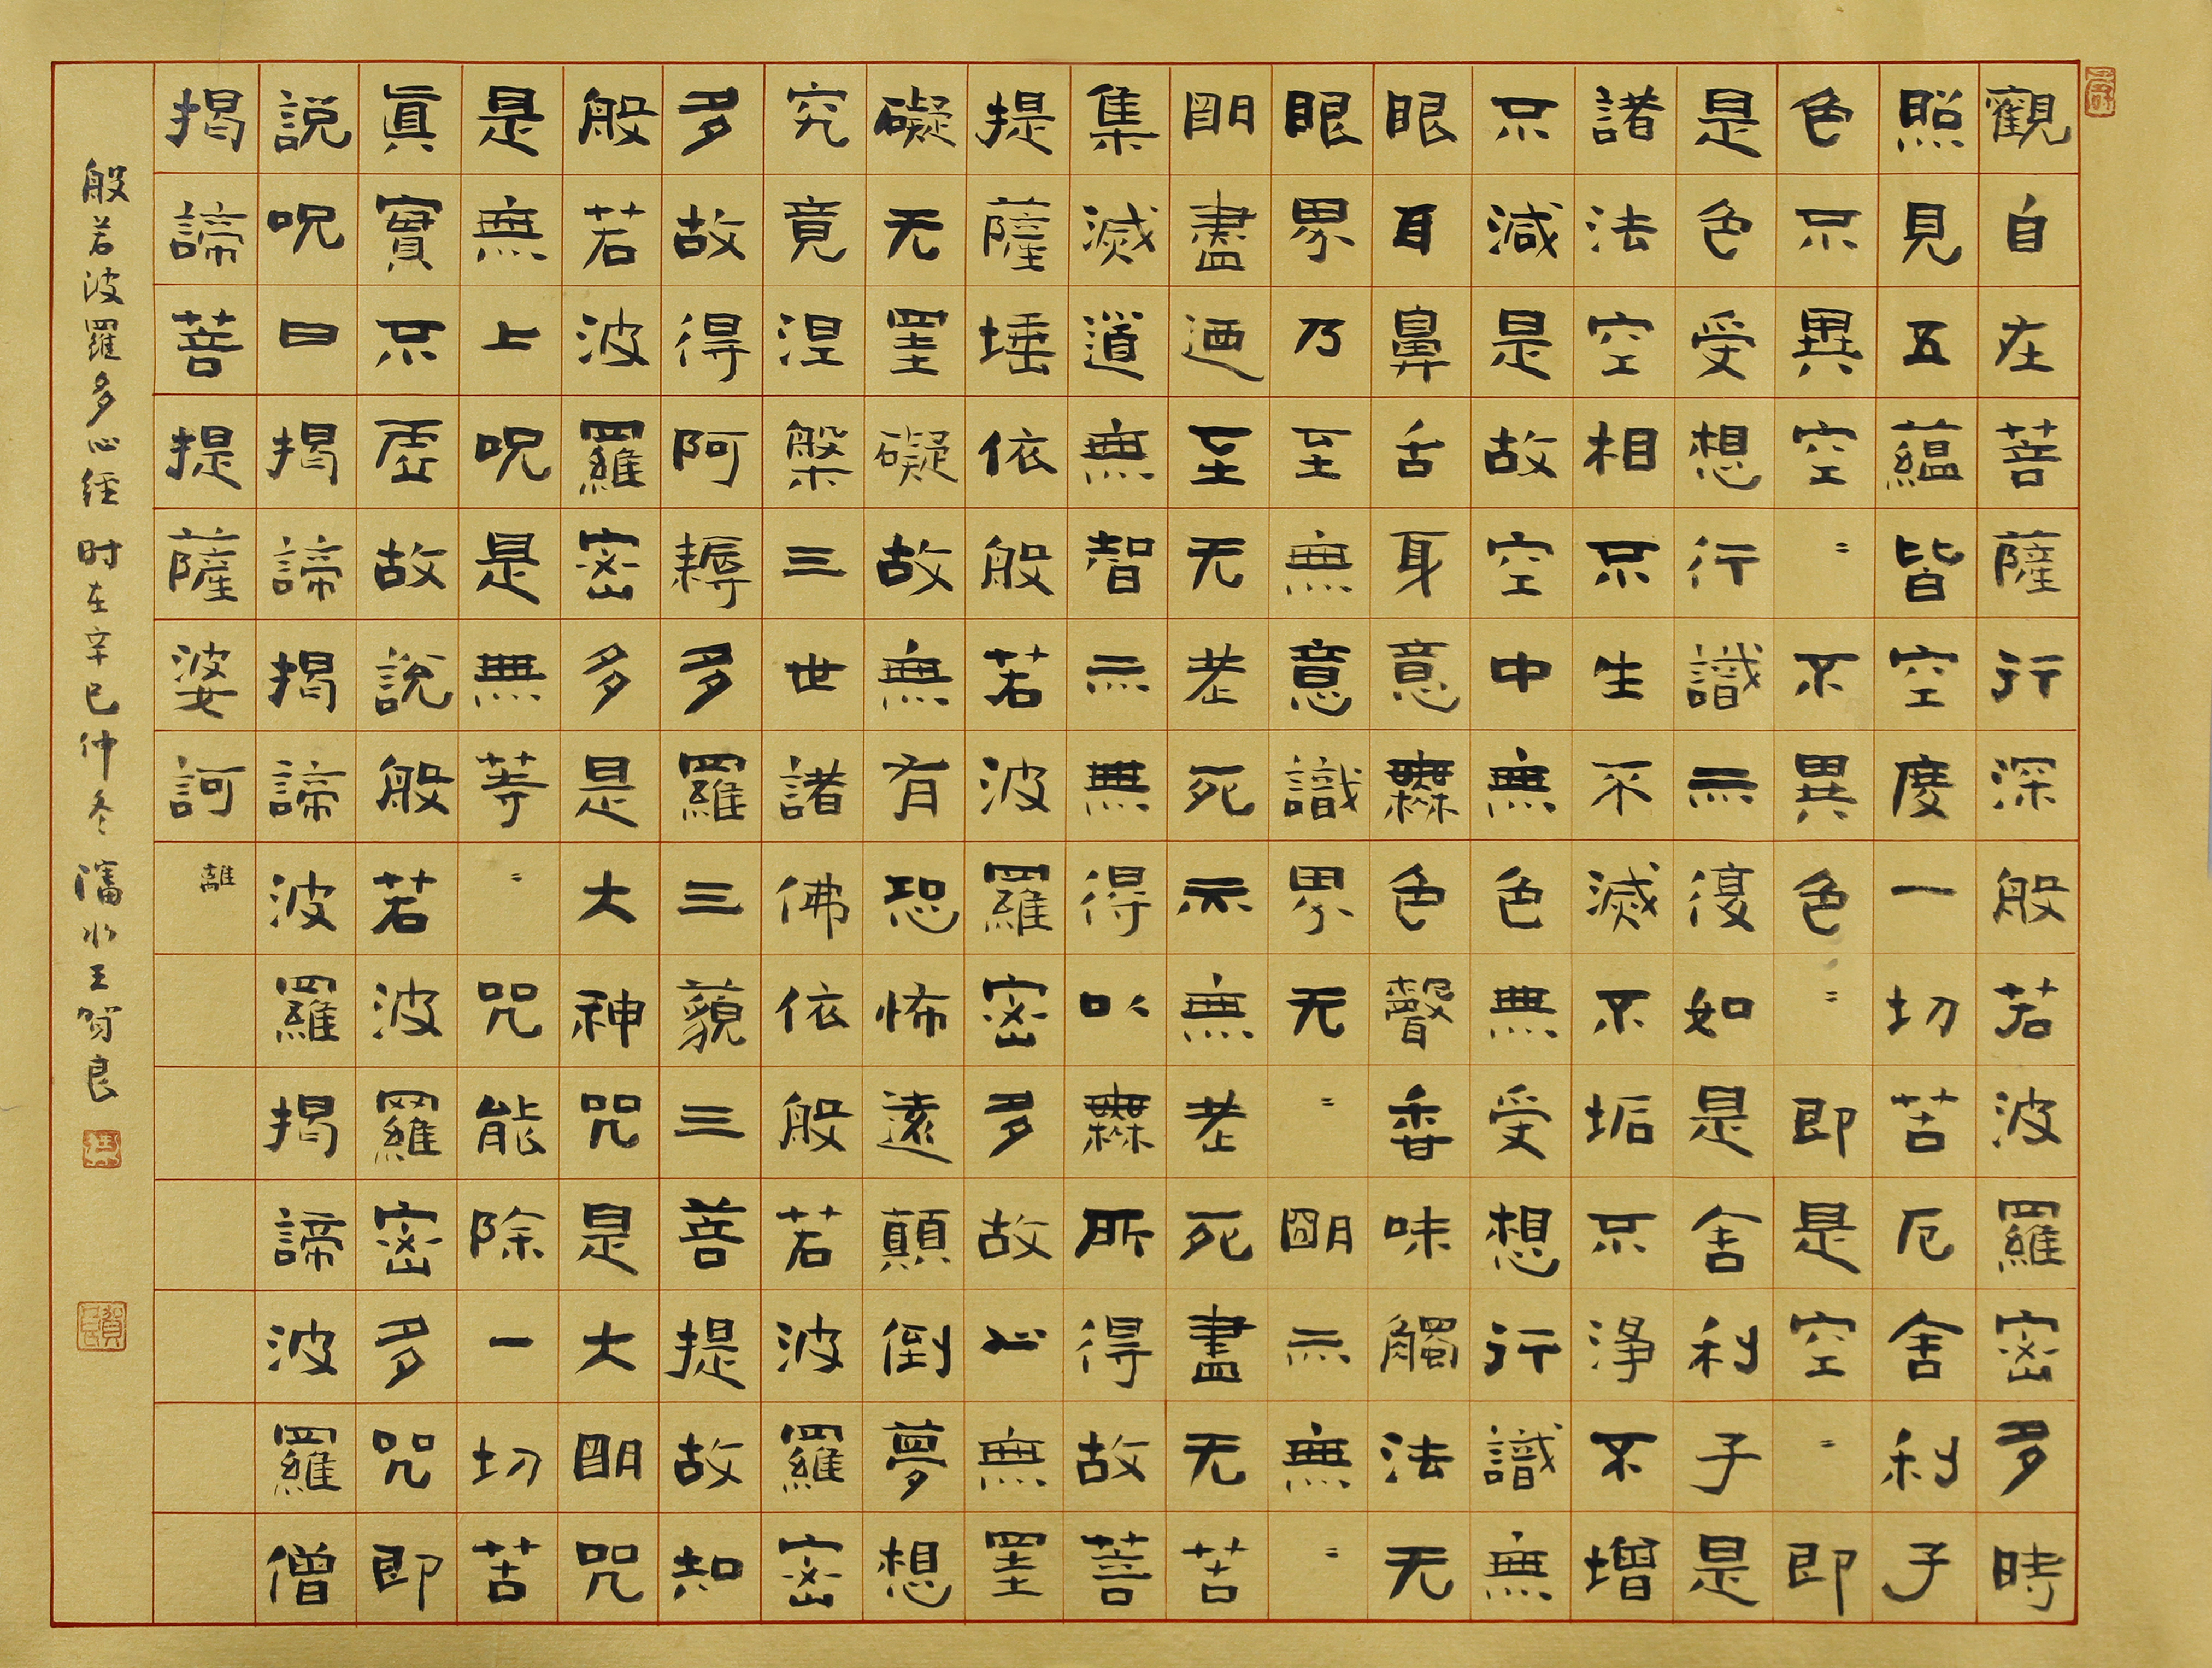 觀自在菩薩行深般若波羅密多時
照見五蘊皆空度一切苦厄舍利子
色不異空〻不異色〻即是空〻即
是色受想行識亦復如是舍利子是
諸法空相不生不滅不垢不淨不增
不減是故空中無色無受想行識無
眼耳鼻舌身意無色聲香味觸法无
眼界乃至無意識界无〻朙亦無〻
眀盡迺至无老死亦無老死盡无苦
集滅道無智亦無得以無所得故菩
提薩埵依般若波羅密多故心無罣
礙无罣礙故無有恐怖遠顛倒夢想
究竟涅槃三世諸佛依般若波羅密
多故得阿耨多羅三藐三菩提故知
般若波羅密多是大神咒是大眀咒
是無上呪是無等〻咒能除一切苦
眞實不虛故說般若波羅密多咒即
說呪曰揭諦揭諦波羅揭諦波羅僧
揭諦菩提薩婆訶 離
般若波羅多心經 时在辛巳仲冬 瀋水王賀良
賀良